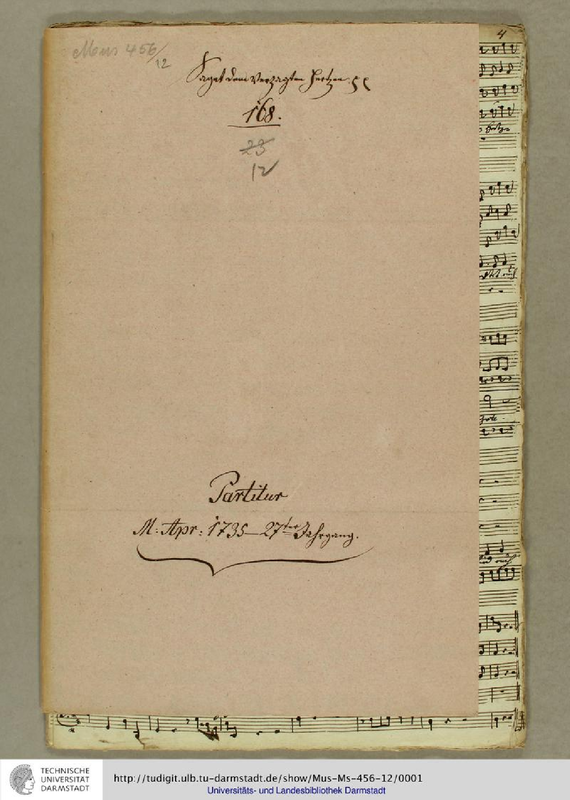 Mus 456/12
4
Saget dem Verzagten Hertzen
168.
23
12
Partitur
M: Apr: 1735 — 27ter Jahrgang.
TECHNISCHE
UNIVERSITÄT
DARMSTADT
http://tudigit.ulb.tu-darmstadt.de/show/Mus-Ms-456-12/0001
Universitäts- und Landesbibliothek Darmstadt